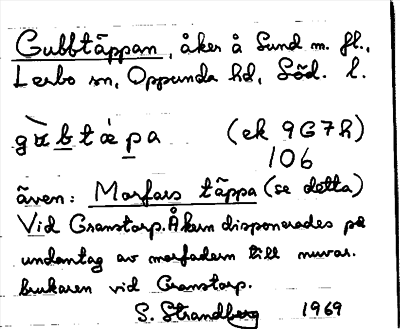 Gubbtäppan, åker å Sund m. fl.,
Lerbo sn, Oppunda hd, Söd. l.
gʉ̀btǽpa (ek 9G7h)
106
även: Morfars täppa (se detta)
Vid Granstorp. Åkern disponerades på
undantag av morfadern till nuvar.
brukaren vid Granstorp.
S. Strandberg 1969